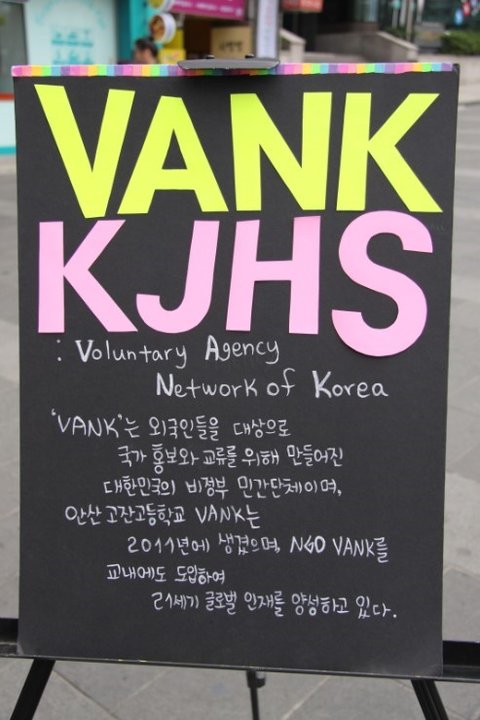 VANK
KJHS
: Voluntary Agency
Network of Korea
'VANK'는 외국인들을 대상으로
국가 홍보와 교류를 위해 만들어진
대한민국의 비정부 민간단체이며,
안산 고잔고등학교 VANK는
2011년에 생겼으며, NGO VANK를
교내에도 도입하여
21세기 글로벌 인재를 양성하고 있다.